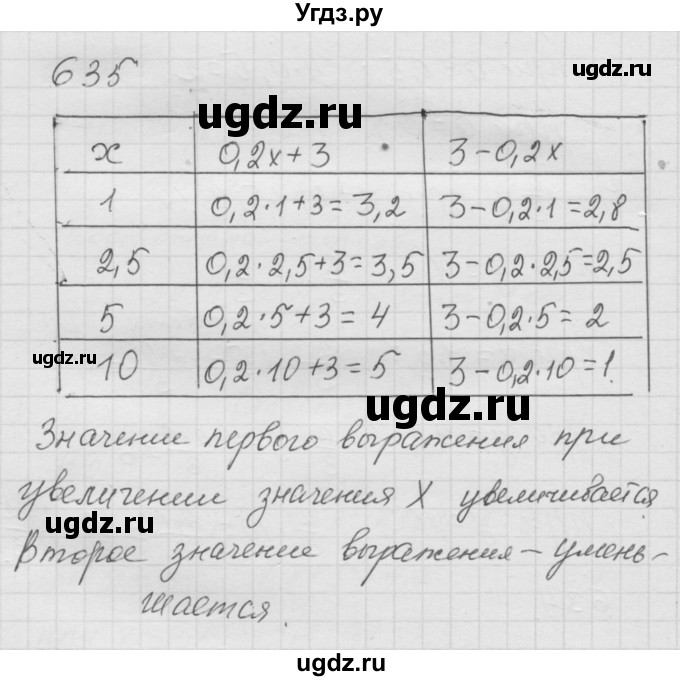 Угдз.ру
635
ugdz.ru
ugdz.ru
x 0,2x+3 3-0,2x
1 0,2·1+3=3,2 3-0,2·1=2,8
2,5 0,2·2,5+3=3,5 3-0,2·2,5=2,5
ugdz.ru
5 0,2·5+3=4 3-0,2·5=2
ugdz.ru
10 0,2·10+3=5 3-0,2·10=1.
ugdz.ru
Значение первого выражения при
увеличении значения X увеличивается
ugdz.ru
Второе значение выражения – умень-
ugdz.ru
шается.
ugdz.ru